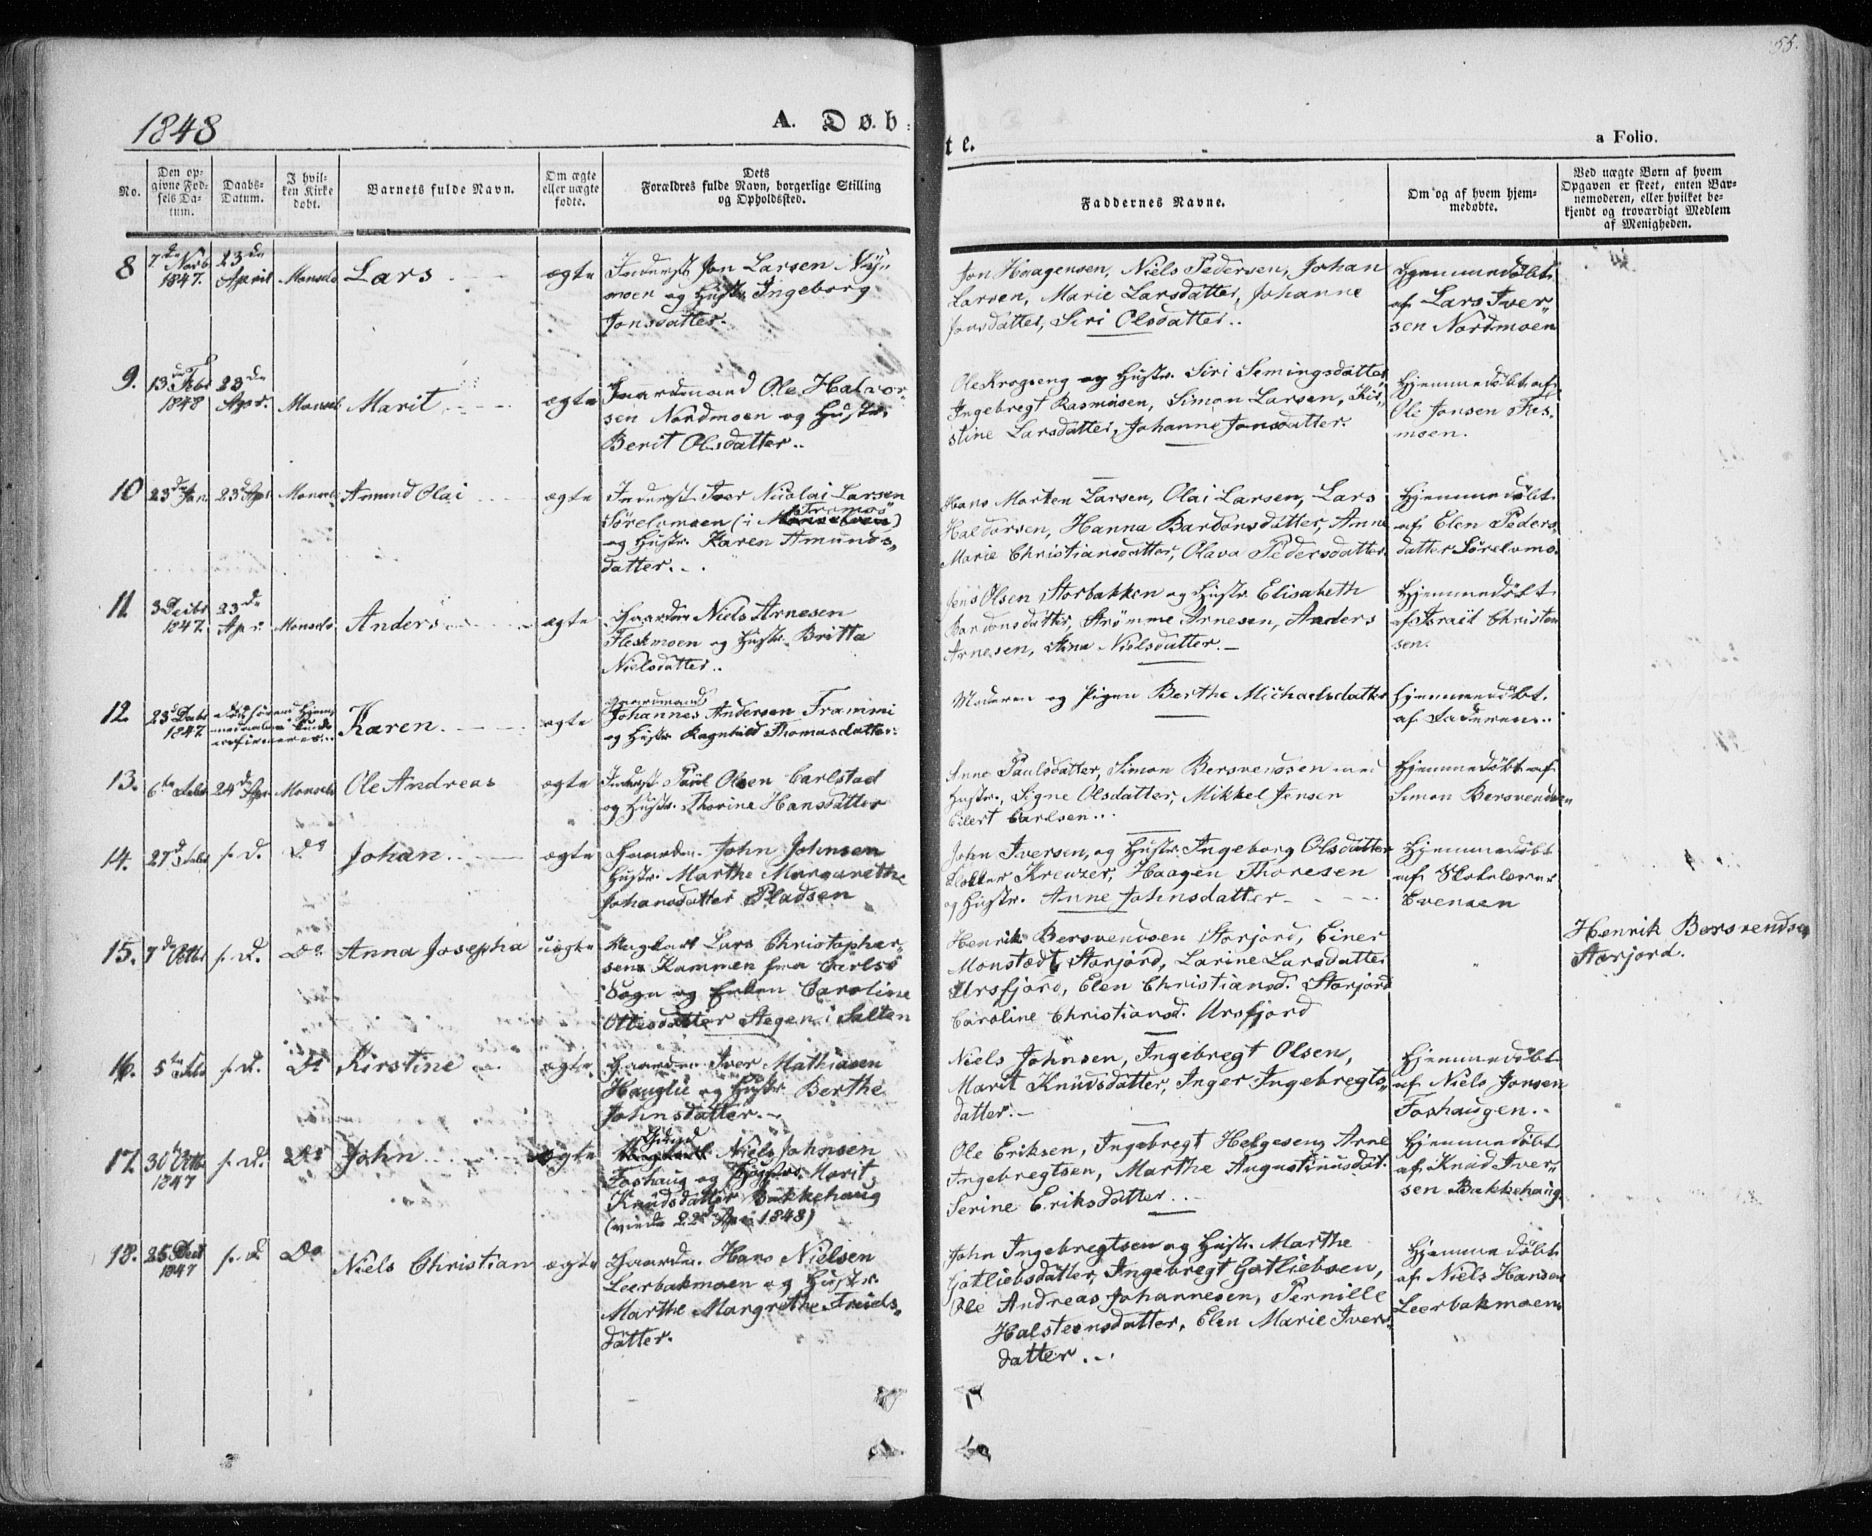 55.
1848
A. Døb-
te.
a Folio.
No.
Den op-
givne Fød-
sels Da-
tum.
Daabs-
Datum.
I hvil-
ken Kirke
døbt.
Barnets fulde Navn.
Om ægte
eller uægte
fødte.
Dets
Forældres fulde Navn, borgerlige Stilling
og Opholdssted.
Faddernes Navne.
Om og af hvem hjem-
medøbte.
Ved uægte Børn af hvem
Opgaven er skeet, enten Bar-
nemoderen, eller hvilket be-
kjendt og troværdigt Medlem
af Menigheden.
8
7de Novb
1847.
23de
April
Maalselv
Lars
ægte
Inderst Jon Larsen Ny-
moen og Hustr. Ingeborg
Jonsdatter.
Jon Haagensen, Niels Pedersen, Johan
Larsen, Marie Larsdatter, Johanne
Jonsdatter, Siri Olsdatter..
Hjemmedøbt
af Lars Iver-
sen Nordmoen
9.
13de Feb
1848
23de
Apr.
Marit
ægte
Gaardmand Ole Halvor-
sen Nordmoen og Hustr.
Berit Olsdatter..
Ole Krogseng og Hustr. Siri Semingsdatter
Ingebregt Rasmusen, Simon Larsen, Kir-
stine Larsdatter, Johanne Jonsdatter.
Hjemmedøbt af
Ole Jonsen
moen.
10
23de Jan
23d Apr
Amund Olai
ægte
Inderst Iver Nicolai Larsen
(i Tromsö)
og Hustr. Karen Amunds-
datter.
Hans Morten Larsen, Olai Larsen, Lars
Haldorsen, Hanna Bardonsdatter, Anne
Marie Christiansdatter, Olava Pedersdatter
Hjemmedøbt
af Elen Peders-
datter Sørelvmo.
11.
3 Decbr
1847.
23de
Apr
Anders
ægte
Gaardm Niels Arnesen
Fleskmoen og Hustr. Britta
Nielsdatter..
Jens Olsen Storbakken og Hustr Elisabeth
Bardonsdatter, Strømme Arnesen, Anders
Arnesen, Ana Nielsdatter.
Hjemmedøbt
af Israel Christen
sen.
12.
23d Decbr
1847
Karen.
ægte
Gaardmand
Johannes Andersen Frammi
og Hustr Ragnhild Thomasdatter.
Moderen og Pigen Berthe Michaelsdatter
Hjemmedøbt
af Faderen..
13.
6te Feb
24de Apr
Ole Andreas
ægte
Inderst Paul Olsen Carlstad
og Hustr. Thorine Hansdatter
Anne Paulsdatter, Simon Bersvendsen med
Hustr., Signe Olsdatter, Mikkel Jensen
Eilert Carlsen...
Hjemmedøbt af
Simon Bersvendsen
14.
27d Feb
s. D.
Do
Johan
ægte
Gaardm. John Johnsen
Hustr. Marthe Margarethe
Johansdatter Pladsen
John Iversen, og Hustr. Ingeborg Olsdatter
Kreuzer, Haagen Thoresen
og Hustr. Anne Johnsdatter
Hjemmedøbt
af Skolelærer
Evensen
15.
7de Octbr
s. D.
Do
Anna Josephia
uægte
Ungkarl Lars Christopher-
sen Kammen fra Carlsö
Sogn og Enken Caroline
Ottesdatter Stegen i Salten
Henrik Bersvendsen Storjord, Einer
Monstedt Storjord, Larine Larsdatter
Ursfjord, Elen Christiansd. Storjord
Caroline Christiansd. Ursfjord
Henrik Bersvendsen
Storjord.
16.
5te Feb
s. D.
Do
Kirstine
ægte
Gaardm Iver Mathiasen
Hauglie og Hustr Berthe
Johnsdatter.
Niels Johnsen, Ingebregt Olsen,
Marit Knudsdatter, Inger Ingebregts-
datter.
Hjemmedøbt
af Niels Jonsen
Foshaugen.
17.
30d Octb
1847
s. D.
Do
John
ægte
Niels Johnsen
Foshaug og Hustr. Marit
Knudsdatter Bakkehaug
(viede 22de Apr 1848)
Ole Eriksen, Ingebregt Helgesen, Arne
Ingebregtsen, Marthe Augustinusdat.
Serine Eriksdatter..
Hjemmedøbt
af Knud Iver-
sen Bakkehaug.
18.
25 Dect
1847
s. D.
Do
Niels Christian
ægte
Gaardm. Hans Nielsen
Leerbakmoen og Hustr.
Marthe Margrethe
datter.
John Ingebregtsen og Hustr. Marthe
Gotliebsdatter, Ingebregt Gotliebsen,
Ole Andreas Johannesen, Pernille
Halsteensdatter, Elen Marie Ivers-
datter.
Hjemmedøbt
af Niels Hansen
Leerbakmoen